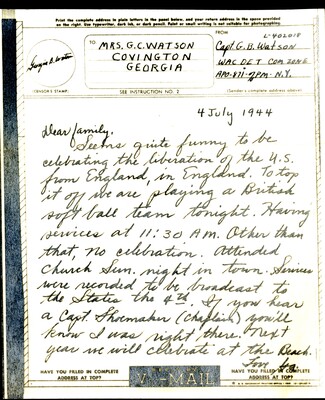 Print the complete address in plain letters in the panel below, and your return address in the space provided
on the right. Use typewriter, dark ink, or dark pencil. Faint or small writing is not suitable for photographing.
TO
MRS. G.C. WATSON
COVINGTON
GEORGIA
FROM
L-402018
Capt. G. B. Watson
WAC DET COM ZONE
APO-871-%PM-N.Y.
(CENSOR'S STAMP)
SEE INSTRUCTION NO. 2
(Sender's complete address above)
4 July 1944
Dear family,
Seems quite funny to be
celebrating the liberation of the U.S.
from England, in England. To top
it off we are playing a British
soft ball team tonight. Having
services at 11:30 AM. Other than
that, no celebration. Attended
church Sun. night in town. Services
were recorded to be broadcast to
the States the 4th. If you hear
a Capt. Shomaker (Chaplain) you'll
know I was right there. Next
year we will celebrate at the Beach.
Love
HAVE YOU FILLED IN COMPLETE
ADDRESS AT TOP?
V-MAIL
HAVE YOU FILLED IN COMPLETE
ADDRESS AT TOP?